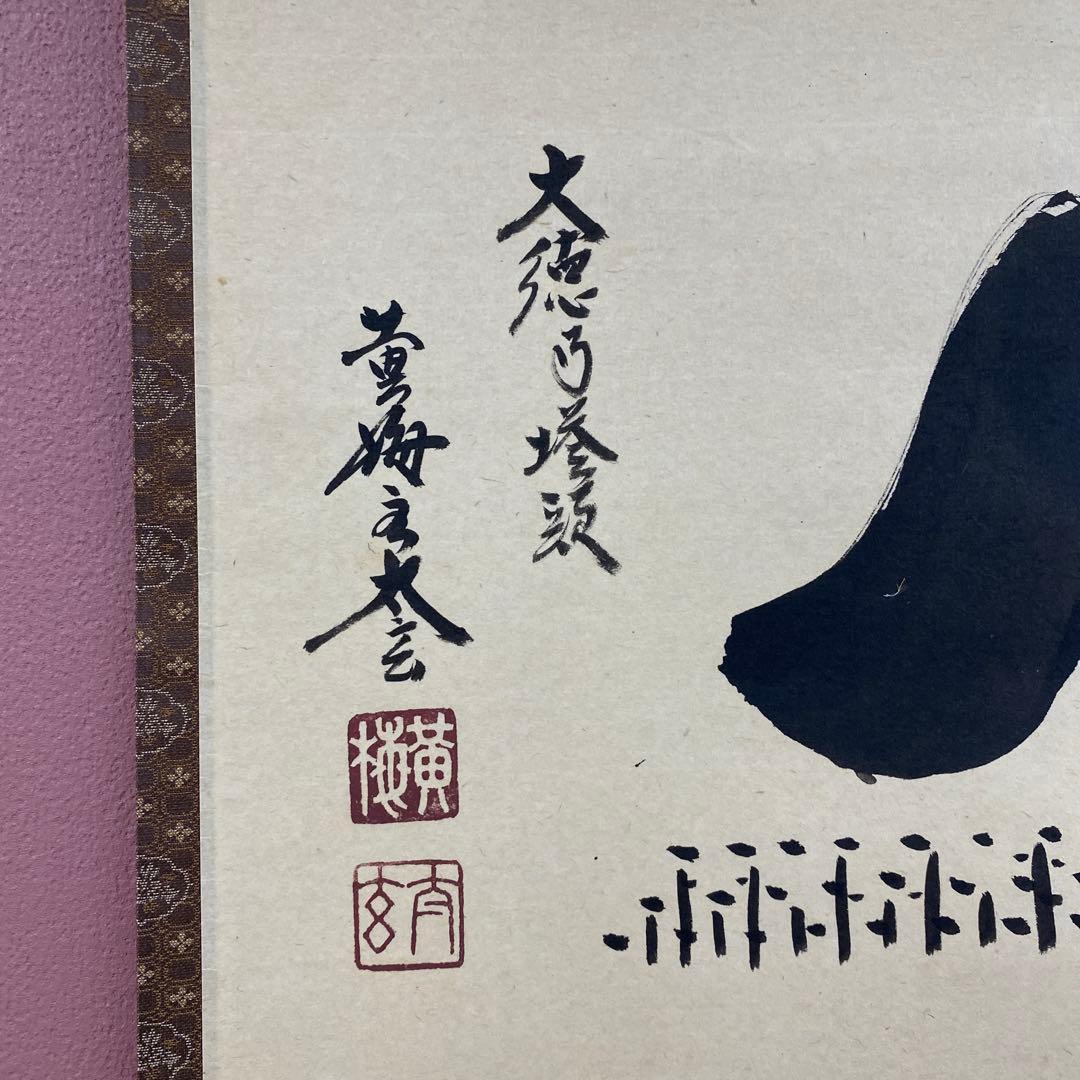 大徳寺塔頭
黄梅主太玄
黄梅
玄